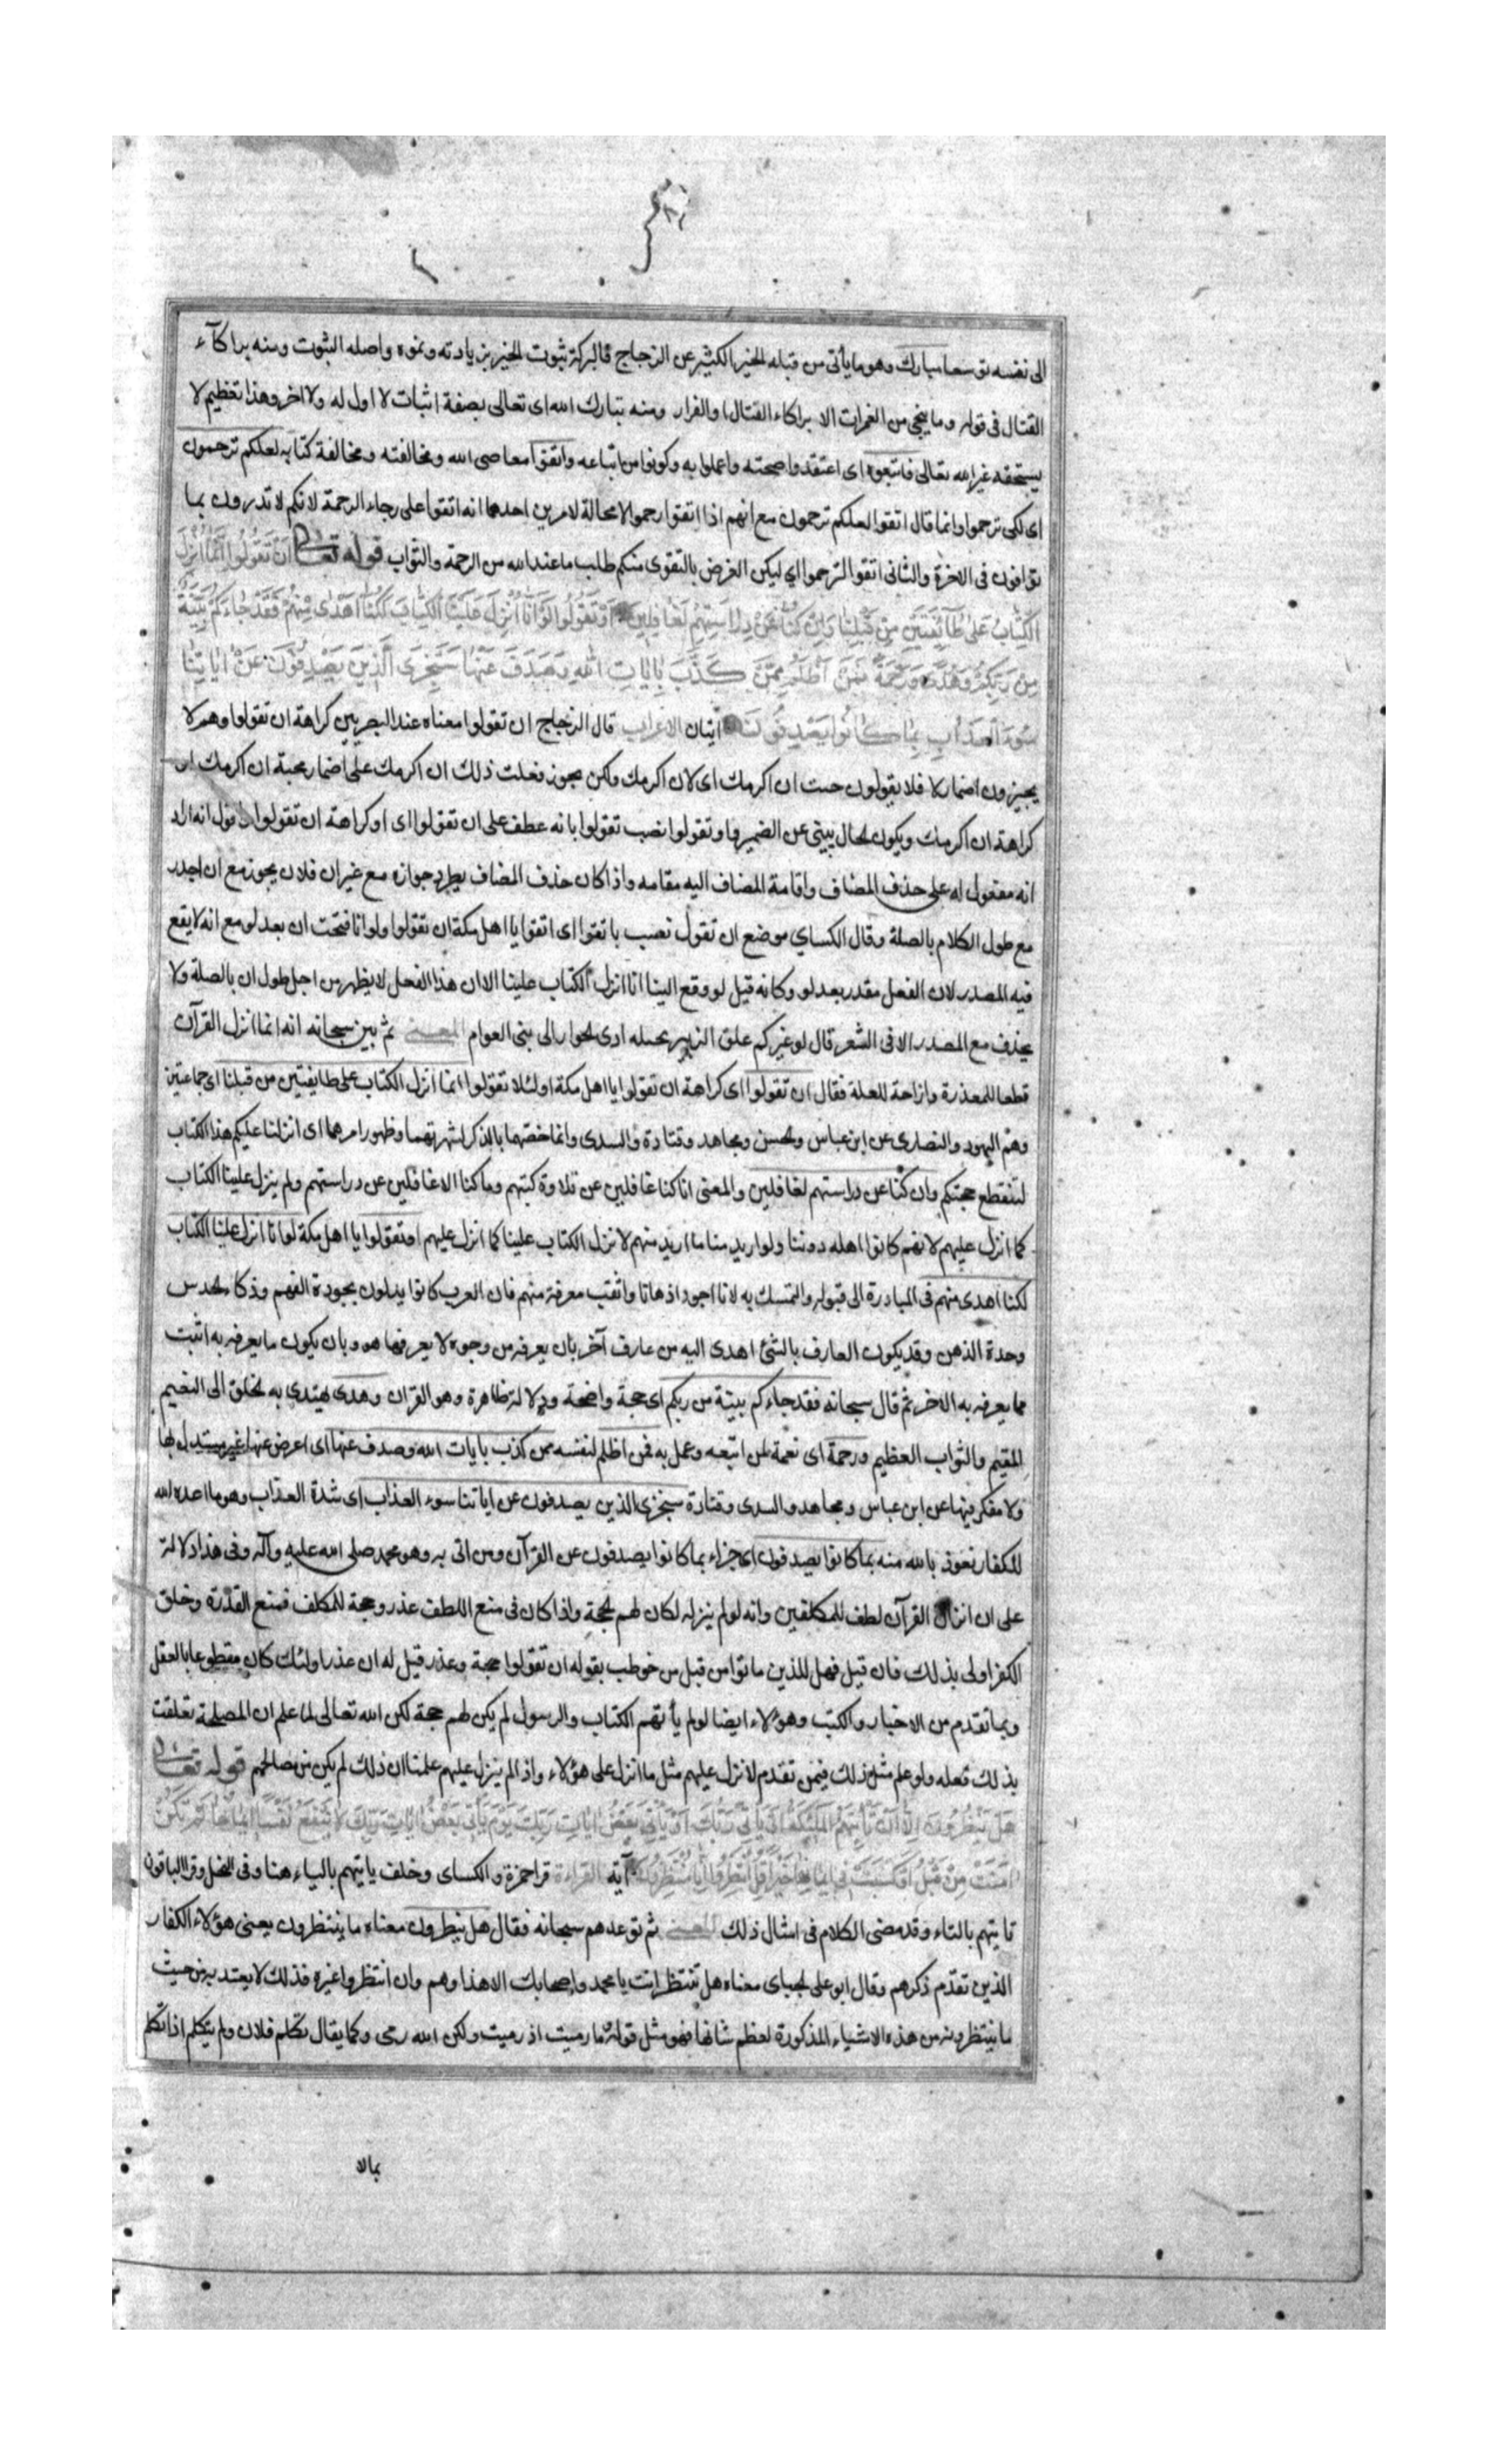 الى نفسه توسعا مبارك وهو ما يأتى من قبله الخير الكثير عن الزجاج فالبركة ثبوت الخير بزيادته ونموه واصله الثبوت ومنه براكآء
القتال فى قوله وما ينجى من الغمرات الا براكاء القتال او الفرار ومنه تبارك الله اى تعالى بصفة اثبات لا اول له ولا اخر وهذا تعظيم لا
يستحقه غير الله تعالى فاتبعوه اى اعتقدوا صحته واعملوا به وكونوا من اتباعه واتقوا معاصى الله ومخالفته ومخالفة كتابه لعلكم ترحمون
اى لكى ترحموا وانما قال اتقوا لعلكم ترحمون مع انهم اذا اتقوا رحموا لا محالة لامرين احدهما انه اتقوا على رجاء الرحمة لانكم لا تدرون بما
توافون فى الاخرة والثانى اتقوا لترحموا اي ليكن الغرض بالتقوى منكم طلب ما عند الله من الرحمة والثواب قوله تعالى أَنْ تَقُولُوا إِنَّمَا أُنْزِلَ
الْكِتَابُ عَلَىٰ طَآئِفَتَيْنِ مِنْ قَبْلِنَا وَإِنْ كُنَّا عَنْ دِرَاسَتِهِمْ لَغَافِلِينَ أَوْ تَقُولُوا لَوْ أَنَّا أُنْزِلَ عَلَيْنَا الْكِتَابُ لَكُنَّا أَهْدَىٰ مِنْهُمْ فَقَدْ جَاءَكُمْ بَيِّنَةٌ
مِنْ رَبِّكُمْ وَهُدًى وَرَحْمَةٌ فَمَنْ أَظْلَمُ مِمَّنْ كَذَّبَ بِآيَاتِ اللهِ وَصَدَفَ عَنْهَا سَنَجْزِى الَّذِينَ يَصْدِفُونَ عَنْ آيَاتِنَا
سُوءَ الْعَذَابِ بِمَا كَانُوا يَصْدِفُونَ آيتان الاعراب قال الزجاج ان تقولوا معناه عند البصريين كراهة ان تقولوا وهم لا
يجيزون اضمار لا فلا يقولون جئت ان اكرمك اى لان اكرمك ولكن يجوز فعلت ذلك ان اكرمك على اضمار محبة ان اكرمك او
كراهة ان اكرمك ويكون الحال يبنى عن الضمير فاو تقولوا نصب تقولوا بانه عطف على ان تقولوا اى او كراهة ان تقولوا اقول انه اراد
انه مفعول له على حذف المضاف واقامة المضاف اليه مقامه واذا كان حذف المضاف يطرد جوازه مع غير ان فلان يجوز مع ان اجدر
مع طول الكلام بالصلة وقال الكساي موضع ان تقول نصب باتقوا اى اتقوا يا اهل مكة ان تقولوا ولو انا فتحت ان بعد لو مع انه لا يقع
فيه المصدر لان الفعل مقدر بعد لو وكانه قيل لو وقع الينا انا انزل الكتاب علينا الا ان هذا الفعل لا يظهر من اجل طول ان بالصلة ولا
يحذف مع المصدر الا فى الشعر قال لو غيركم علق الزبير بحبله ادى الجوار الى بنى العوام المعنى ثم بين سبحانه انه انما انزل القرآن
قطعا للمعذرة وازاحة للعلة فقال ان تقولوا اى كراهة ان تقولوا يا اهل مكة او لئلا تقولوا انما انزل الكتاب على طايفتين من قبلنا اى جماعتين
وهم اليهود والنصارى عن ابن عباس والحسن ومجاهد وقتادة والسدى وانما خصهما بالذكر لشهرتهما وظهور امرهما اى انزلنا عليكم هذا الكتاب
لتنقطع حجتكم وان كنا عن دراستهم لغافلين والمعنى انا كنا غافلين عن تلاوة كتبهم وما كنا الا غافلين عن دراستهم ولم ينزل علينا الكتاب
كما انزل عليهم لانهم كانوا اهله دوننا ولو اريد منا ما اريد منهم لانزل الكتاب علينا كما انزل عليهم او تقولوا يا اهل مكة لو انا انزل علينا الكتاب
لكنا اهدى منهم فى المبادرة الى قبوله والتمسك به لانا اجود اذهانا واثقب معرفة منهم فان العرب كانوا يدلون بجودة الفهم وذكاء الحدس
وحدة الذهن وقد يكون العارف بالشئ اهدى اليه من عارف آخر بان يعرفه من وجوه لا يعرفها هو وبان يكون ما يعرفه به اثبت
مما يعرفه به الاخر ثم قال سبحانه فقد جاءكم بينة من ربكم اى حجة واضحة ودلالة ظاهرة وهو القران وهدى يهتدى به الخلق الى النعيم
المقيم والثواب العظيم ورحمة اى نعمة لمن اتبعه وعمل به فمن اظلم لنفسه ممن كذب بايات الله وصدف عنها اى اعرض عنها غير مستدل بها
ولا مفكر فيها عن ابن عباس ومجاهد والسدى وقتادة سنجزى الذين يصدفون عن اياتنا سوء العذاب اى شدة العذاب وهو ما اعده الله
للكفار نعوذ بالله منه بما كانوا يصدفون اى جزاء بما كانوا يصدفون عن القرآن ومن اتى به وهو محمد صلى الله عليه وآله وفى هذا دلالة
على ان انزال القرآن لطف للمكلفين وانه لو لم ينزله لكان لهم الحجة واذا كان فى منع اللطف عذر وحجة للمكلف فمنع القدرة وخلق
الكفر اولى بذلك فان قيل فهل للذين ماتوا من قبل من خوطب بقوله ان تقولوا حجة وعذر قيل له ان عذر اولئك كان مقطوعا بالعقل
وبما تقدم من الاخبار والكتب وهؤلاء ايضا لو لم يأتهم الكتاب والرسول لم يكن لهم حجة لكن الله تعالى لما علم ان المصلحة تعلقت
بذلك فعله ولو علم مثل ذلك فيمن تقدم لانزل عليهم مثل ما انزل على هؤلاء واذ لم ينزل عليهم علمنا ان ذلك لم يكن من مصالحهم قوله تعالى
هَلْ يَنْظُرُونَ إِلَّا أَنْ تَأْتِيَهُمُ الْمَلٰئِكَةُ أَوْ يَأْتِىَ رَبُّكَ أَوْ يَأْتِىَ بَعْضُ آيَاتِ رَبِّكَ يَوْمَ يَأْتِى بَعْضُ آيَاتِ رَبِّكَ لَا يَنْفَعُ نَفْسًا إِيمَانُهَا لَمْ تَكُنْ
آمَنَتْ مِنْ قَبْلُ أَوْ كَسَبَتْ فِى إِيمَانِهَا خَيْرًا قُلِ انْتَظِرُوا إِنَّا مُنْتَظِرُونَ آية القراءة قرا حمزة والكساى وخلف ياتيهم بالياء هنا وفى النحل وقرا الباقون
تاتيهم بالتاء وقد مضى الكلام فى امثال ذلك المعنى ثم توعدهم سبحانه فقال هل ينظرون معناه ما ينتظرون يعنى هؤلاء الكفار
الذين تقدم ذكرهم وقال ابو على الجباى معناه هل تنتظر انت يا محمد واصحابك الا هذا وهم وان انتظروا غيره فذلك لا يعتد به من حيث
ما ينتظرونه من هذه الاشياء المذكورة لعظم شانها فهو مثل قوله ما رميت اذ رميت ولكن الله رمى وكما يقال تكلم فلان ولم يتكلم اذا تكلم
بمالا